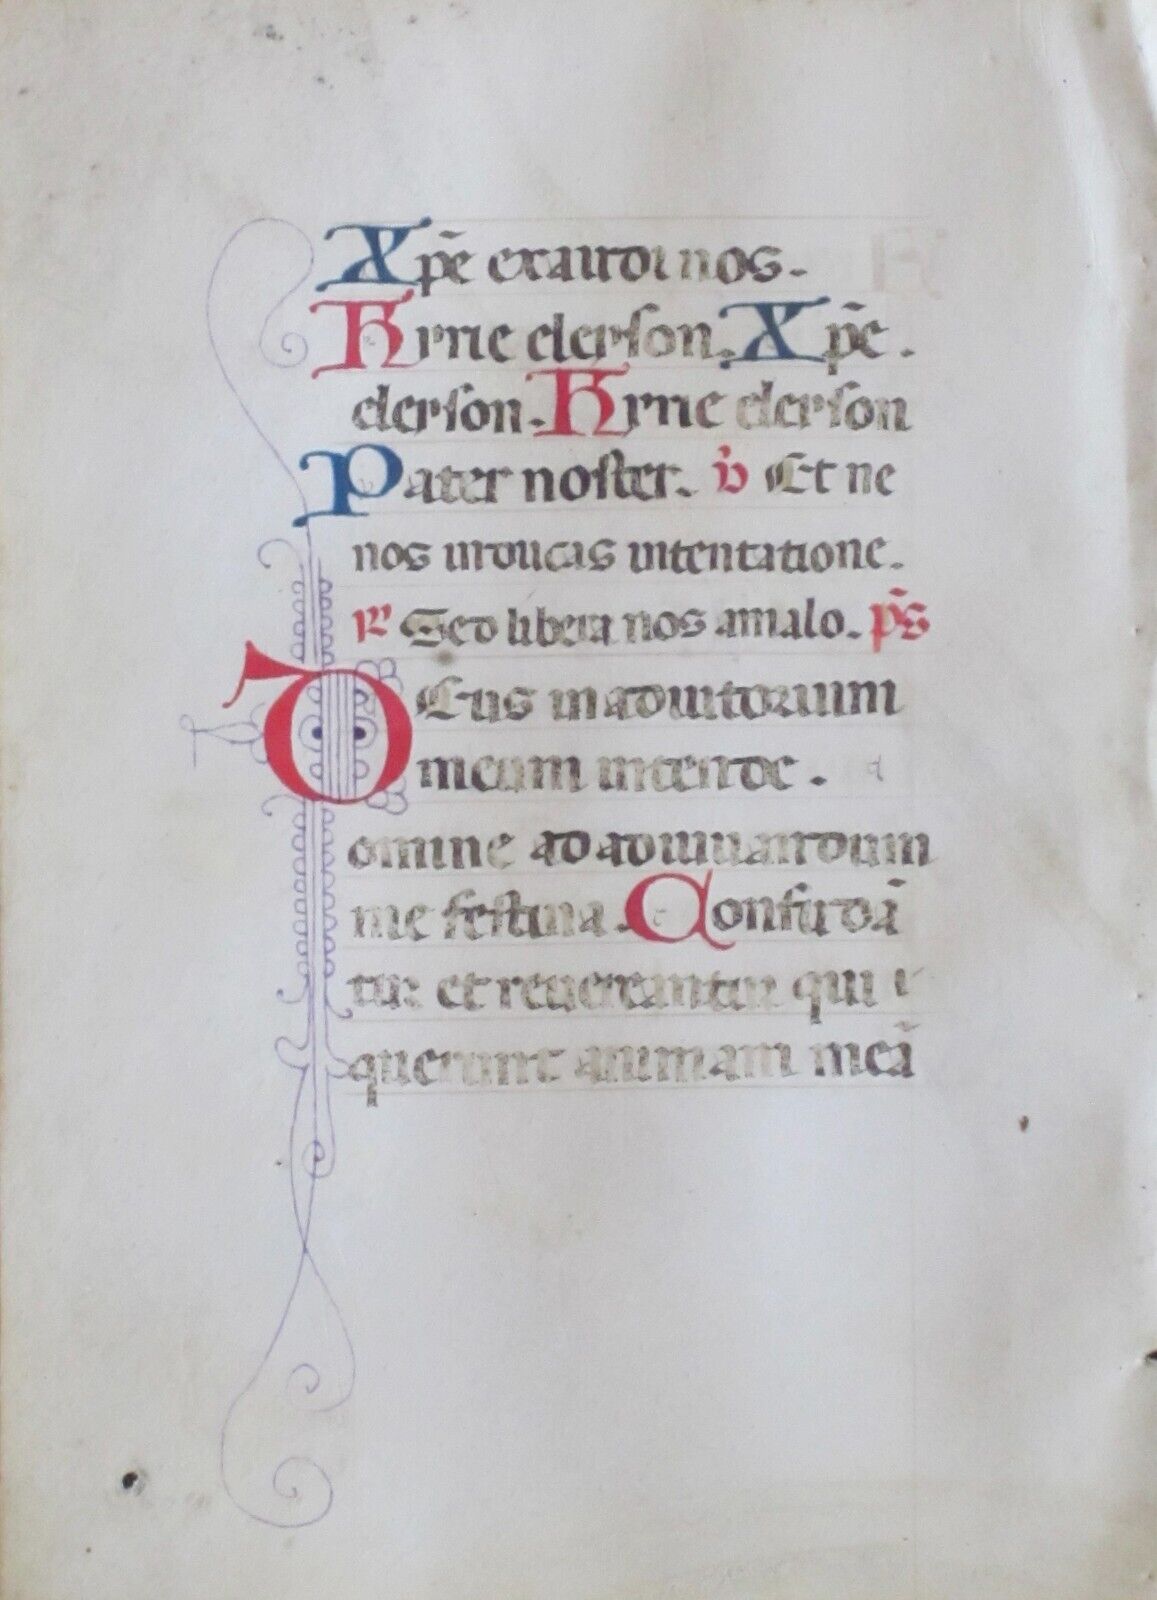 Xpē exaudi nos.
Kyrie eleyson. Xpē.
eleyson. Kyrie eleyson
Pater noster. v Et ne
nos inducas intentatione.
R Sed libera nos amalo. pˢ
Deus in adiutorium
meum intende.
omine ad adiuuandum
me festina. Confundā
tur et reuereantur qui
querunt animam meā